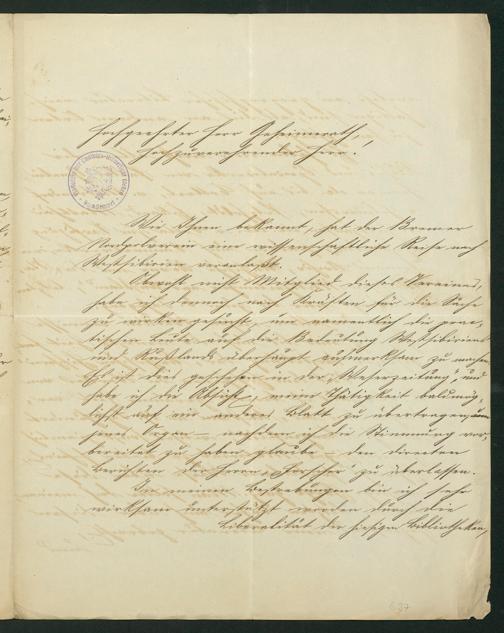 Hochgeehrter Herr Geheimerath,
Hochzuverehrender Herr!
Wie Ihnen bekannt, hat der Bremer
Nordpolverein eine wissenschaftliche Reise nach
Westsibirien veranlaßt.
Obwohl nicht Mitglied dieses Vereines,
habe ich dennoch nach Kräften für die Sache
zu wirken gesucht, um namentlich die prac-
tischen Leute auf die Bedeutung Westsibiriens
und Rußlands überhaupt aufmerksam zu machen.
Es ist dies geschehen in der "Weserzeitung", und
habe ich die Absicht, meine Thätigkeit baldmög-
lichst auf ein anderes Blatt zu übertragen, um
jenes Organ – nachdem ich die Stimmung vor-
bereitet zu haben glaube – den directen
Berichten der Herren "Forscher" zu überlassen.
In meinen Bestrebungen bin ich sehr
wirksam unterstützt worden durch die
Liberalität der hiesigen Bibliotheken,